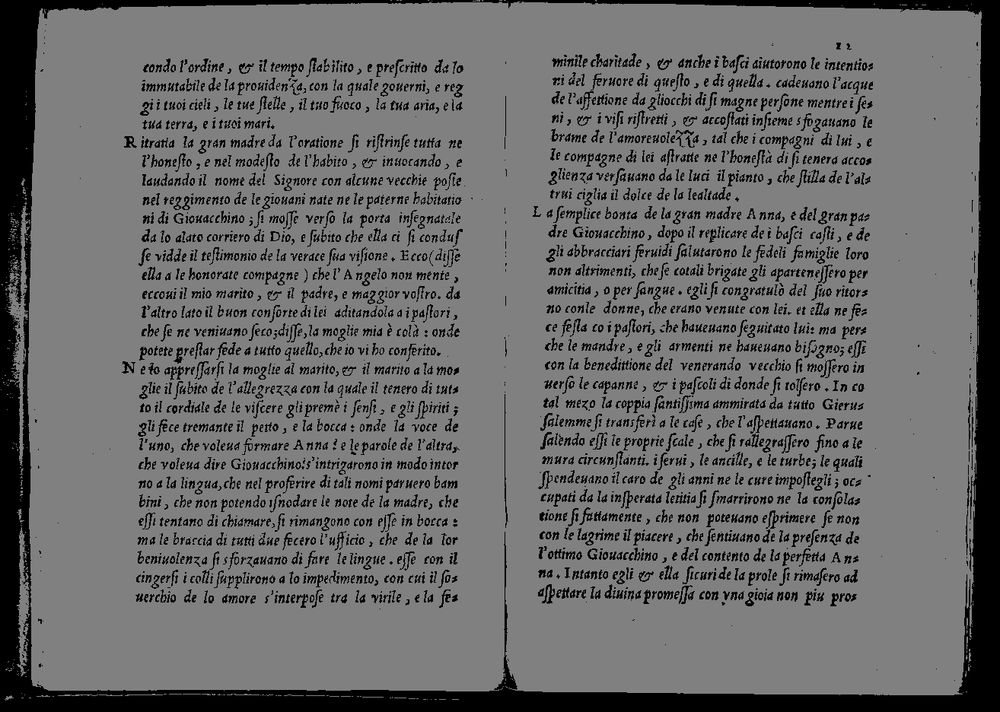 condo l'ordine, & il tempo ſtabilito, e preſcritto da lo
immutabile de la prouidenza, con la quale gouerni, e reg
gi i tuoi cieli, le tue ſtelle, il tuo fuoco, la tua aria, e la
tua terra, e i tuoi mari.
Ritratta la gran madre da l'oratione ſi riſtrinſe tutta ne
l'honeſto, e nel modeſto de l'habito, & inuocando, e
laudando il nome del Signore con alcune vecchie poſte
nel reggimento de le giouani nate ne le paterne habitatio
ni di Giouacchino; ſi moſſe verſo la porta inſegnatale
da lo alato corriero di Dio, e ſubito che ella ci ſi conduſ
ſe vidde il teſtimonio de la verace ſua viſione. Ecco (diſſe
ella a le honorate compagne) che l'Angelo non mente,
eccoui il mio marito, & il padre, e maggior voſtro. da
l'altro lato il buon conſorte di lei aditandola a i paſtori,
che ſe ne veniuano ſeco; diſſe, la moglie mia è colà: onde
potete preſtar fede a tutto quello, che io vi ho conferito.
Ne lo appreſſarſi la moglie al marito, & il marito a la mo=
glie il ſubito de l'allegrezza con la quale il tenero di tut=
to il cordiale de le viſcere gli premè i ſenſi, e gli ſpiriti;
gli fece tremante il petto, e la bocca: onde la voce de
l'uno, che voleua formare Anna! e le parole de l'altra,
che voleua dire Giouacchino! s'intrigarono in modo intor
no a la lingua, che nel proferire di tali nomi paruero bam
bini, che non potendo iſnodare le note de la madre, che
eſſi tentano di chiamare, ſi rimangono con eſſe in bocca:
ma le braccia di tutti due fecero l'ufficio, che de la lor
beniuolenza ſi sforzauano di fare le lingue. eſſe con il
cingerſi i colli ſupplirono a lo impedimento, con cui il ſo=
uerchio de lo amore s'interpoſe tra la virile, e la fe=
12
minile charitade, & anche i baſci aiutorono le intentio=
ni del feruore di queſto, e di quella. cadeuano l'acque
de l'affettione da gliocchi di ſi magne perſone mentre i ſe=
ni, e i viſi riſtretti, & accoſtati inſieme sfogauano le
brame de l'amoreuolezza, tal che i compagni di lui, e
le compagne di lei aſtratte ne l'honeſtà di ſi tenera acco=
glienza verſauano da le luci il pianto, che ſtilla de l'al=
trui ciglia il dolce de la lealtade.
La ſemplice bonta de la gran madre Anna, e del gran pa=
dre Giouacchino, dopo il replicare de i baſci caſti, e de
gli abbracciari feruidi ſalutarono le fedeli famiglie loro
non altrimenti, che ſe cotali brigate gli aparteneſſero per
amicitia, o per ſangue. egli ſi congratulò del ſuo ritor=
no con le donne, che erano venute con lei. et ella ne fe=
ce feſta co i paſtori, che haueuano ſeguitato lui: ma per=
che le mandre, e gli armenti ne haueuano biſogno; eſſi
con la benedittione del venerando vecchio ſi moſſero in
uerſo le capanne, & i paſcoli di donde ſi tolſero. In co
tal mezo la coppia ſantiſſima ammirata da tutto Gieru=
ſalemme ſi transferì a le caſe, che l'aſpettauano. Parue
ſalendo eſſi le proprie ſcale, che ſi rallegraſſero fino a le
mura circunſtanti. i ſerui, le ancille, e le turbe; le quali
ſpendeuano il caro de gli anni ne le cure impoſtegli; oc=
cupati da la inſperata letitia ſi ſmarrirono ne la conſola=
tione ſi fattamente, che non poteuano eſprimere ſe non
con le lagrime il piacere, che ſentiuano de la preſenza de
l'ottimo Giouacchino, e del contento de la perfetta An=
na. Intanto egli & ella ſicuri de la prole ſi rimaſero ad
aſpettare la diuina promeſſa con vna gioia non piu pro=